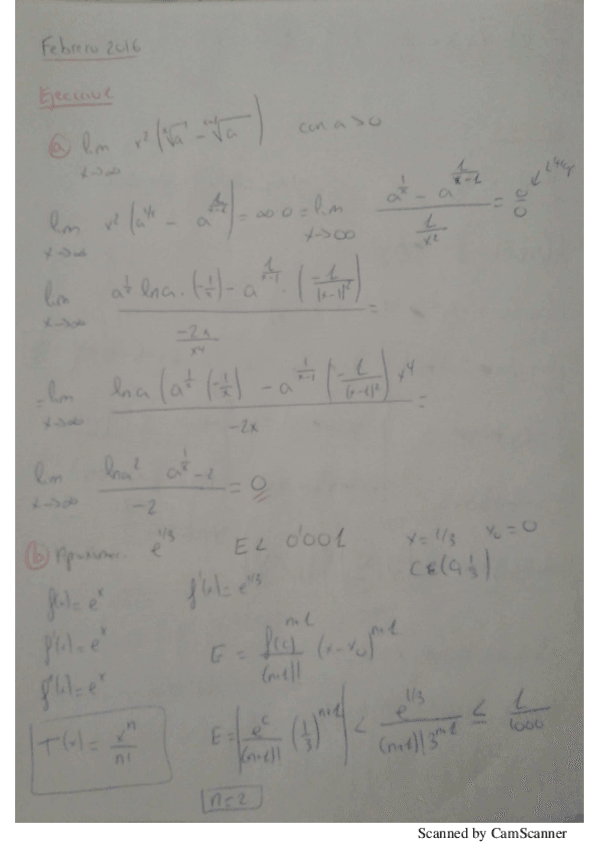 Febrero 2016
a lim x→∞ x² (ˣ√a - ˣ⁻¹√a) con a>0
lim x→∞ x² (a^(1/x) - a^(1/(x-1))) = ∞·0 = lim x→∞ (a^(1/x) - a^(1/(x-1))) / (1/x²) = 0/0
lim x→∞ (a^(1/x) lna · (-1/x) - a^(1/(x-1)) · (-1/(x-1)²)) / (-2x/x⁴) =
= lim x→∞ (lna (a^(1/x) (-1/x) - a^(1/(x-1)) (-1/(x-1)²) x⁴) / (-2x) =
lim x→∞ (lna² a^(1/x) - 2) / (-2) = 0
b e^(1/3) E < 0'001 x = 1/3 x₀ = 0
f(x) = eˣ f'(x) = e^(1/3) C ∈ (0, 1/3)
f'(x) = eˣ E = f(c)^(n+1) / (n+1)! (x-x₀)^(n+1)
f''(x) = eˣ
T(x) = xⁿ/n! E = |e^c/(n+1)! (1/3)^(n+1)| < e^(1/3) / ((n+1)! 3^(n+1)) ≤ 1/1000
n=2
Scanned by CamScanner